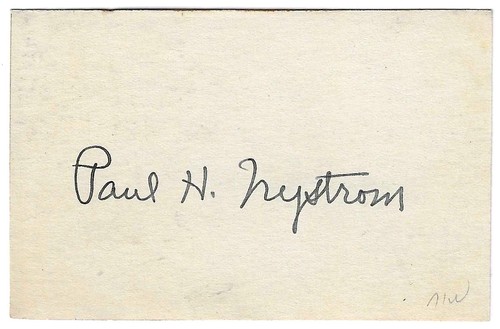 Paul H. Nystrom